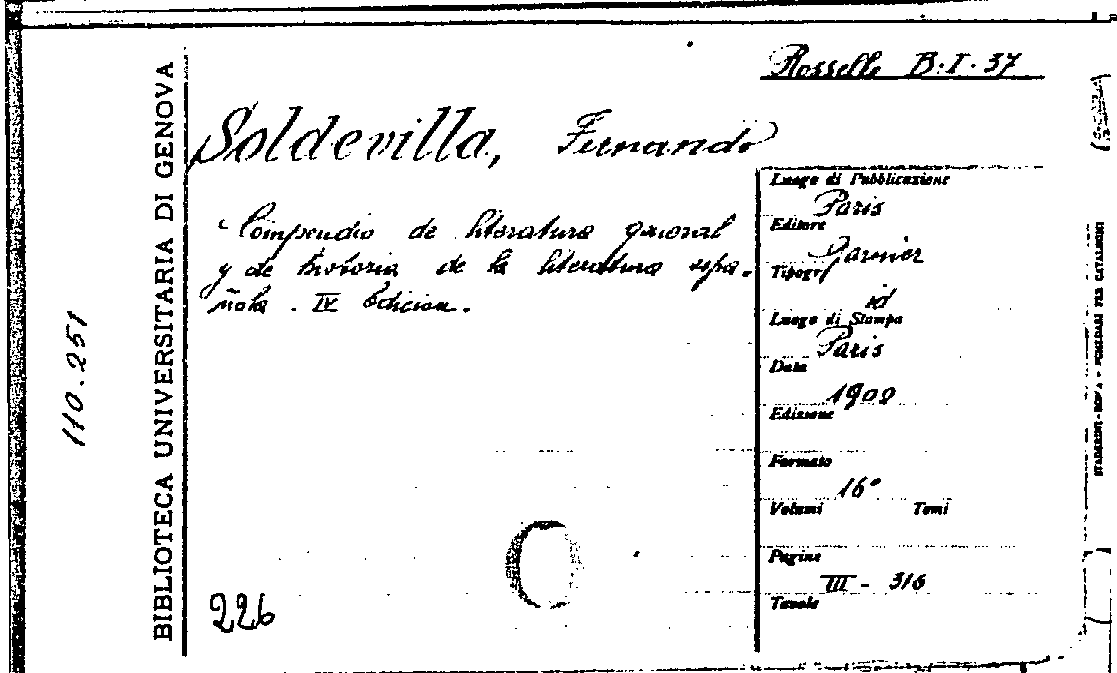 Rosselli B.I.37
Soldevilla, Fernando
Compendio de literatura general
y de historia de la literatura espa-
ñola. IV Edicion.
226
110.251
BIBLIOTECA UNIVERSITARIA DI GENOVA
Luogo di Pubblicazione
Paris
Editore
Garnier
Tipogr
id
Luogo di Stampa
Paris
Data
1900
Edizione
Formato
16°
Volumi Tomi
Pagine
III - 316
Tavole
STADERINI - ROMA - SCHEDARI PER CATALOGHI